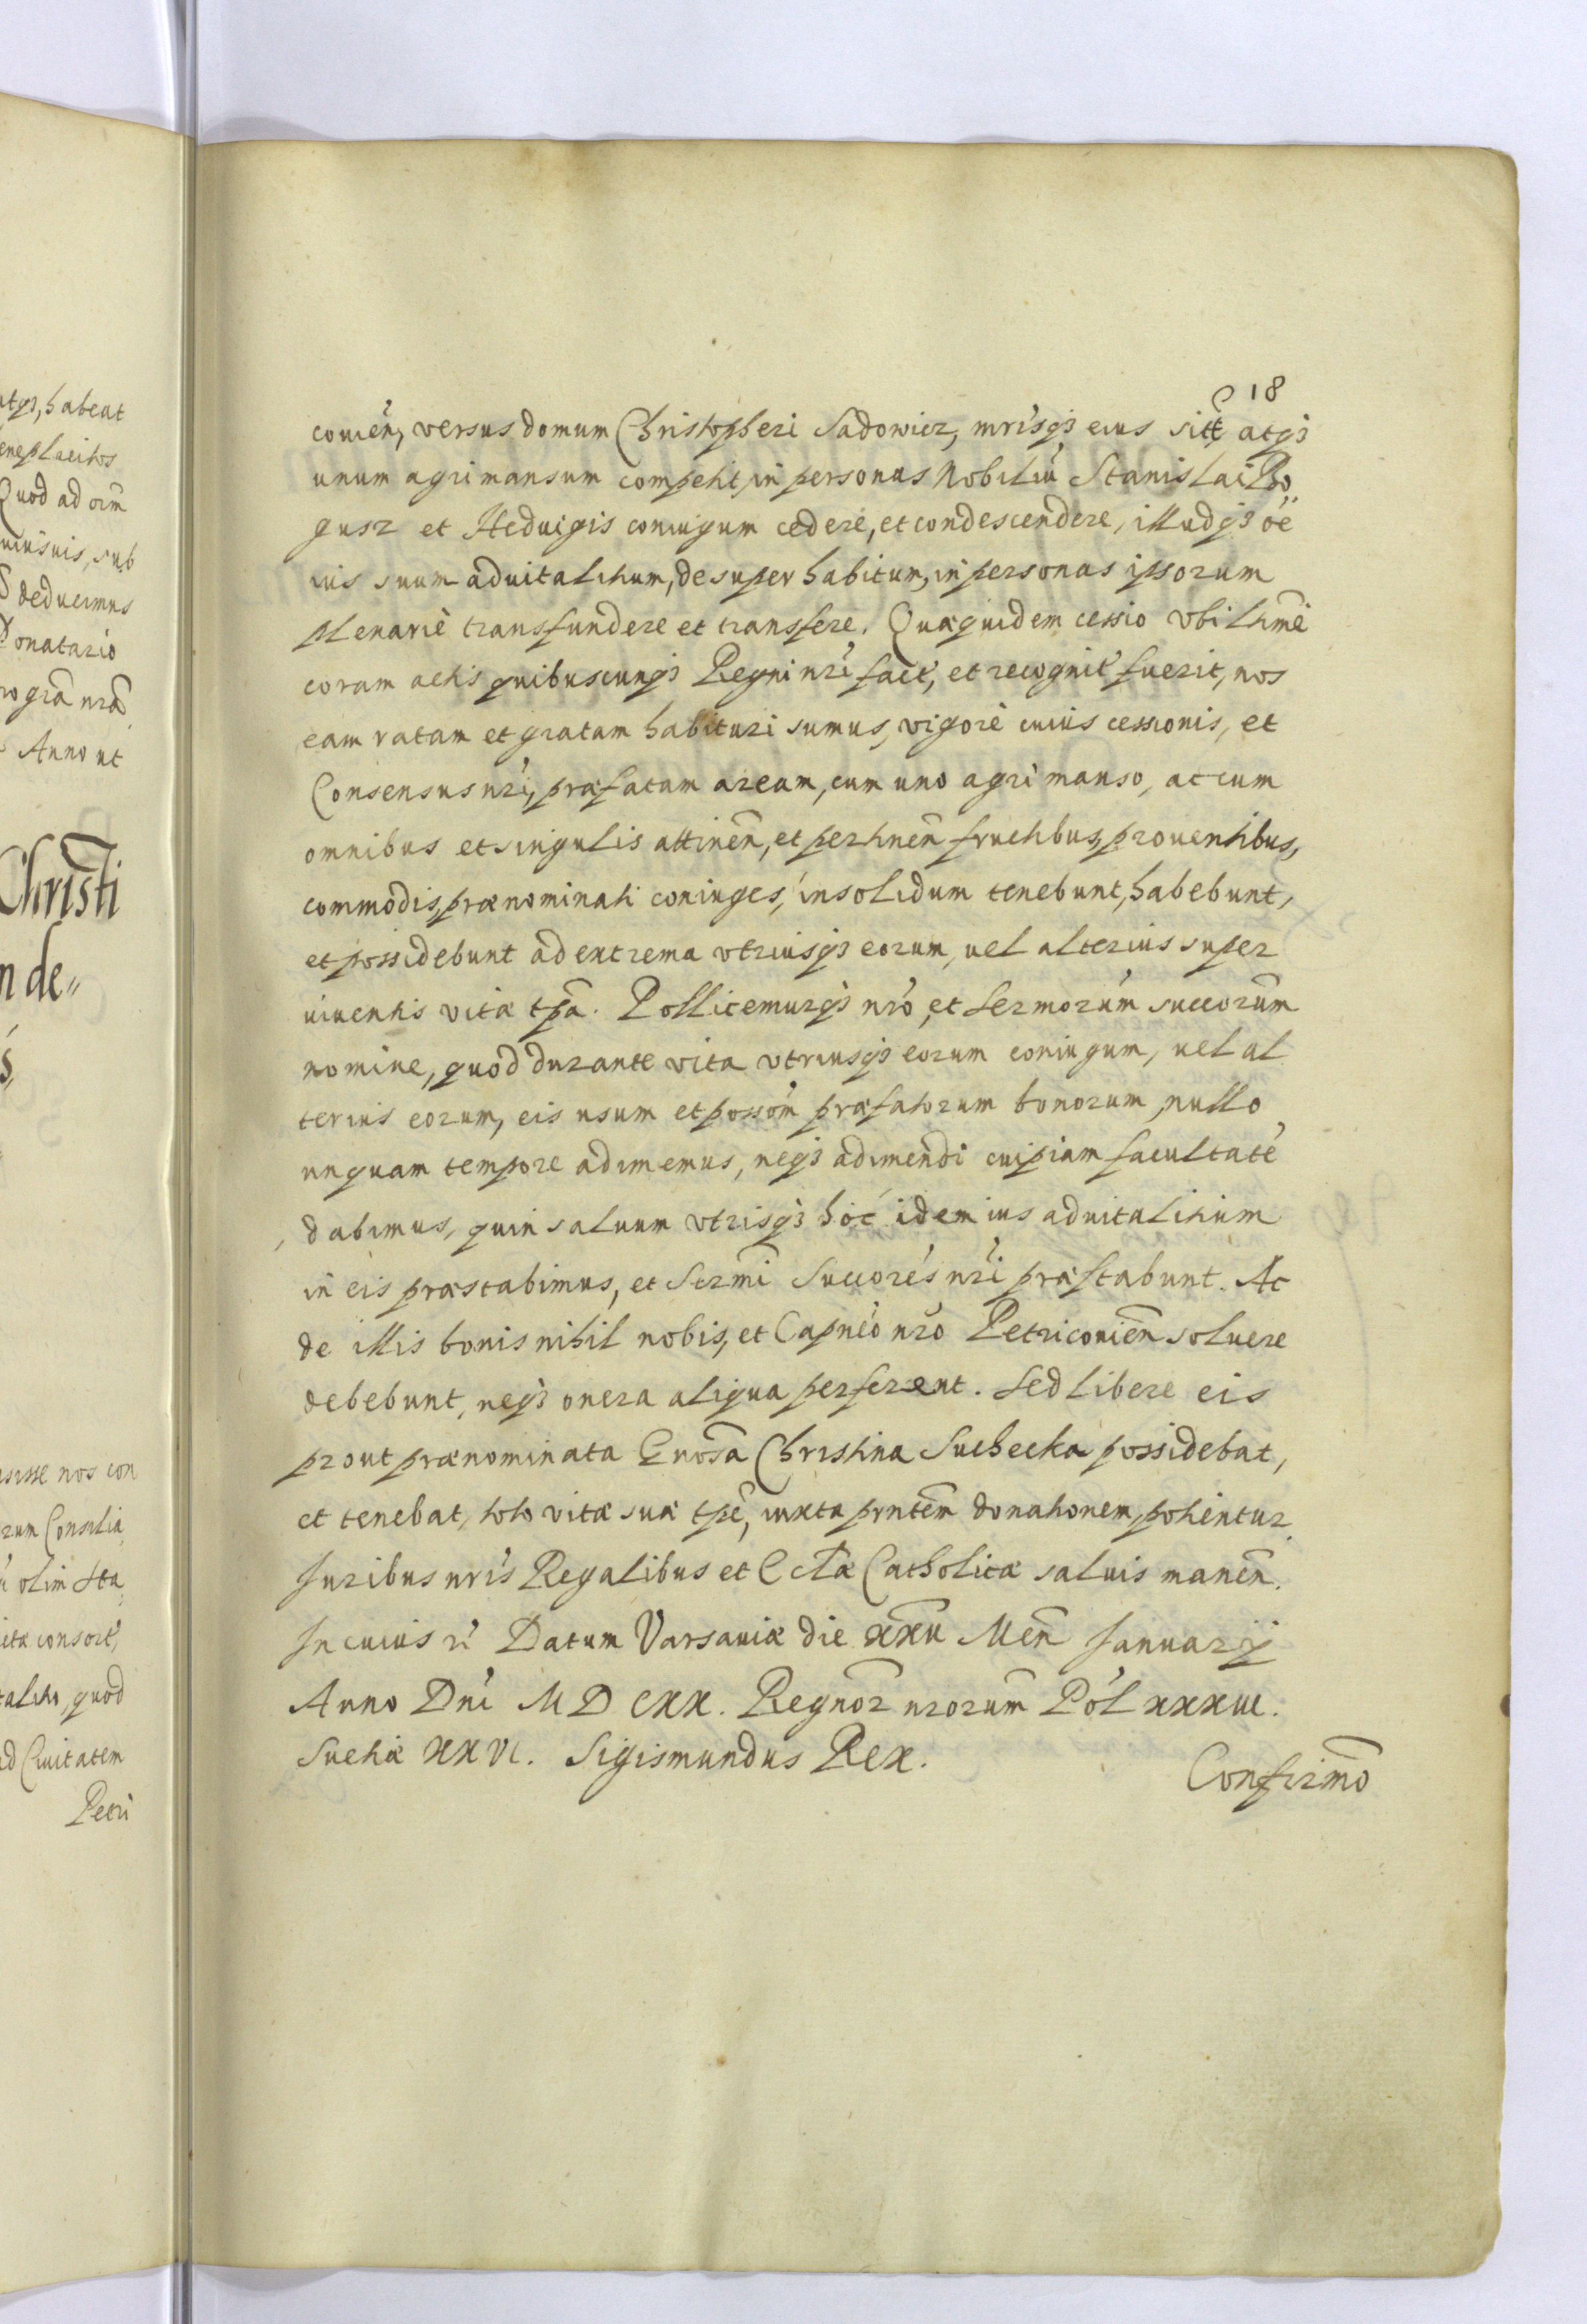 18
couien, versus domum Christopheri Sadowicz, mrisq3 eius sitt atq3
unum agri mansum competit, in personas Nobiliu Stanislai Bo„
gusz et Heduigis coniugum cedere, et condescendere, illudq3 oe
ius suum aduitalitium, desuper habitum, in personas ipsorum
plenarie transfundere et transfere. Quæquidem cessio vbi ltime
coram actis quibuscunq3 Regni nri fact, et recognit fuerit, nos
eam ratam et gratam habituri sumus, vigore cuius cessionis, et
Consensus nri, præfatam aream, cum uno agri manso, ac cum
omnibus et singulis attinen, et pertinen fructibus, prouentibus,
commodis, prænominati coniuges, insolidum tenebunt, habebunt,
et possidebunt ad extrema vtriusq3 eorum, uel alterius super
uiuentis vitæ tpa. Pollicemurq3 nro, et Sermorum succorum
nomine, quod durante vita vtriusq3 eorum coniugum, uel al
terius eorum, eis usum et possom præfatorum bonorum, nullo
unquam tempore adimemus, neq3 adimendi cuipiam facultate
dabimus, quin saluum vtrisq3 hoc idem ius aduitalitium
in eis præstabimus, et Sermi Succores nri præstabunt. Ac
de illis bonis nihil nobis, et Capneo nro Petricouien soluere
debebunt, neq3 onera aliqua perferent. Sed libere eis
prout prænominata Gnosa Christina Suchecka possidebat,
et tenebat, toto vitæ suæ tpe, iuxta pntem donationem, potientur
Iuribus nris Regalibus et Eccłæ Catholicæ saluis manen.
In cuius ri Datum Varsauiæ die xxv Men Ianuarij
Anno Dni MDCXX. Regnor nrorum Pol xxxiii.
Suetiæ XXVI. Sigismundus Rex.
Confirmo